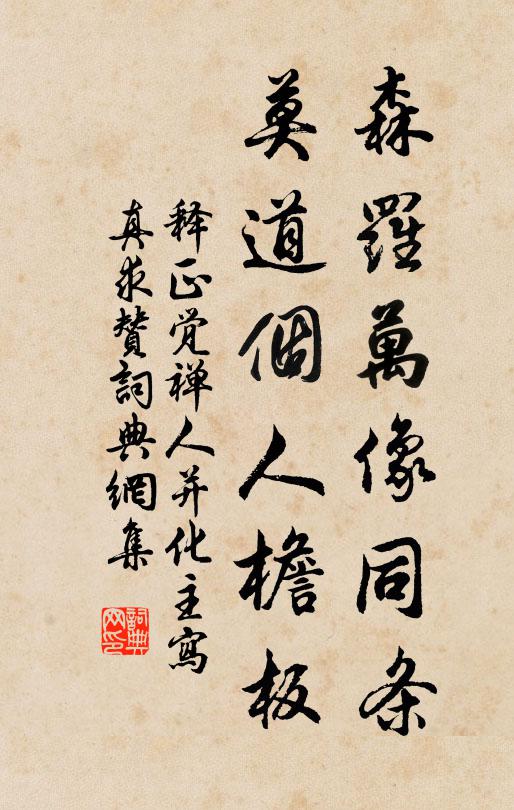 森羅萬像同条
莫道個人檐板
释正觉禅人并化主寫
真求賛詞典網集
詞典网印